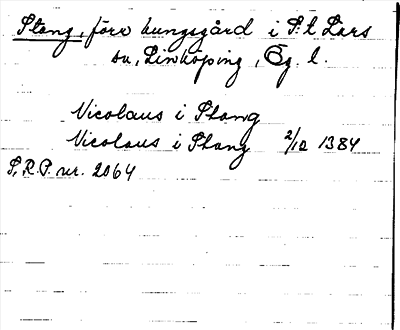 Stang, förr kungsgård i S:t Lars
sn, Linköping, Ög. l.
Nicolaus i Stang
Nicolaus i Stang 2/10 1384
S.R.P. nr. 2064